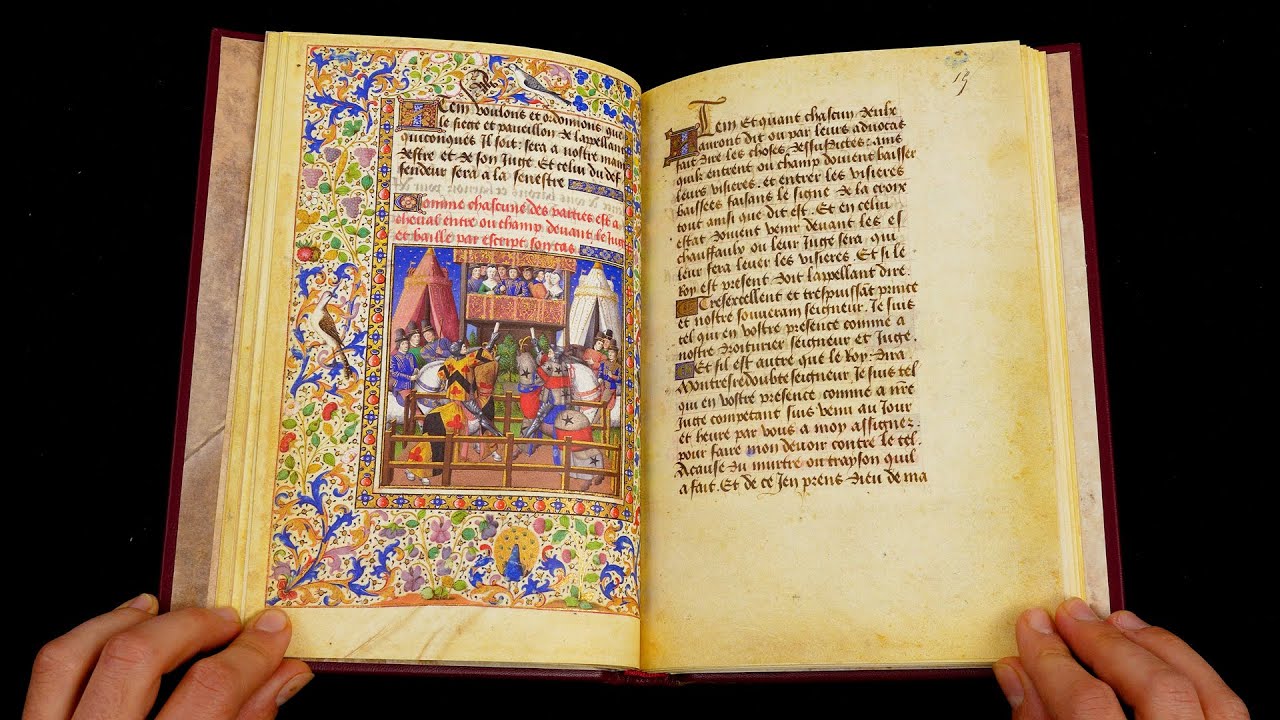 Item voulons et ordonnons que
le siege et paveillon de lappellant
quiconques Il soit: sera a nostre main
destre et de son Juge. Et celui du def
fendeur sera a la senestre
Comme chascune des parties est a
cheval entre ou champ devant le Juge
et baille par escript son cas
15
Item Et quant chascun deulx
auront dit ou par leurs advocas
fait dire les choses dessusdictes: ains
quilz entrent ou champ doivent baisser
leurs visieres. et entrer les visieres
baissees faisans le signe de la croix
tout ainsi que dit est. Et en celui
estat doivent venir devant les es
chauffaulx ou leur Juge sera, qui
leur fera lever les visieres. Et si le
Roy est present doit lappellant dire.
Tresexcellent et trespuissant prince
et nostre souverain seigneur. Je suis
tel qui en vostre presence comme a
nostre droiturier seigneur et Juge.
Et sil est autre que le Roy. dira
Mon tresredoubte seigneur, Je suis tel
qui en vostre presence comme a nre
Juge competant suis venu au Jour
et heure par vous a moy assignez
pour faire mon devoir contre le tel
Acause du murtre ou trayson quil
a fait. Et de ce Jen prens dieu de ma